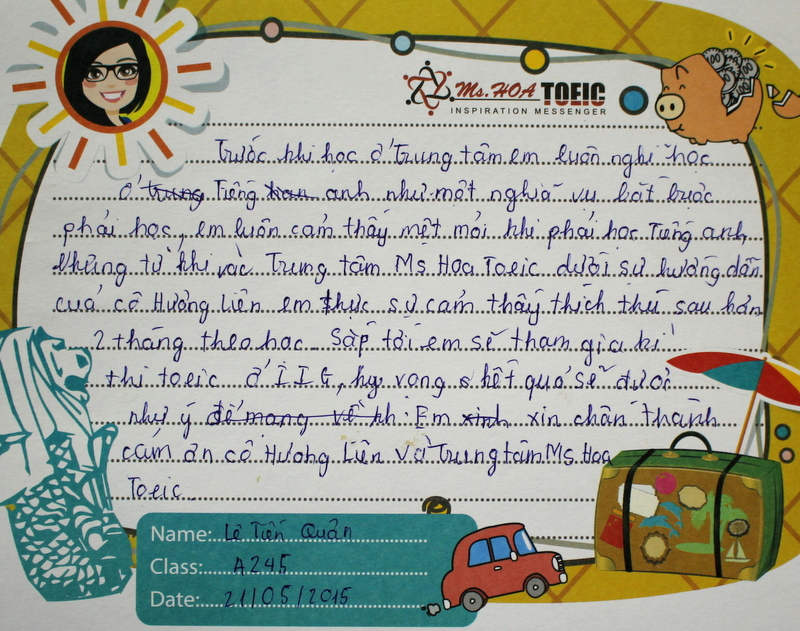 Ms. HOA TOEIC
INSPIRATION MESSENGER
Trước khi học ở Trung tâm em luôn nghĩ học
ở trung Tiếng han anh như một nghĩa vụ bắt buộc
phải học, em luôn cảm thấy mệt mỏi khi phải học Tiếng anh
Nhưng từ khi vào Trung tâm Ms Hoa Toeic dưới sự hướng dẫn
của cô Hương Liên em thực sự cảm thấy thích thú sau hơn
2 tháng theo học. Sắp tới em sẽ tham gia kì
thi toeic ở IIG, hy vọng kết quả sẽ được
như ý để mang về kh Em xinh xin chân thành
cảm ơn cô Hương Liên và Trung tâm Ms Hoa
Toeic.
Name: Lê Tiến Quân
Class: A245
Date: 21/05/2015